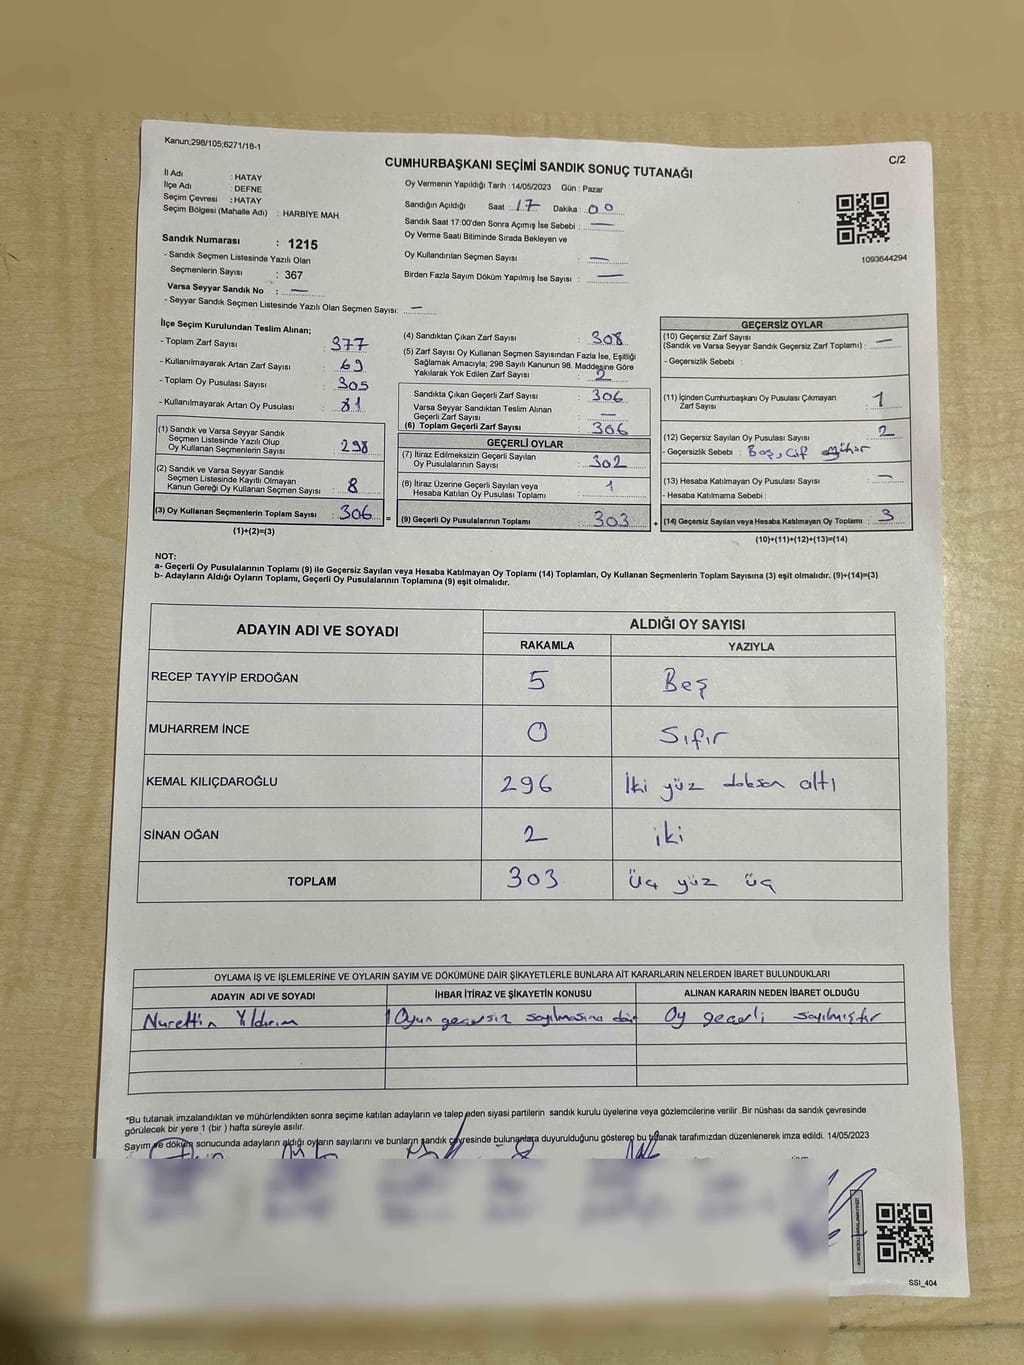 Kanun;298/105;6271/18-1
C/2
CUMHURBAŞKANI SEÇİMİ SANDIK SONUÇ TUTANAĞI
İl Adı : HATAY
İlçe Adı : DEFNE
Seçim Çevresi : HATAY
Seçim Bölgesi (Mahalle Adı) : HARBİYE MAH.
Sandık Numarası : 1215
- Sandık Seçmen Listesinde Yazılı Olan
Seçmenlerin Sayısı : 367
Varsa Seyyar Sandık No : —
- Seyyar Sandık Seçmen Listesinde Yazılı Olan Seçmen Sayısı: —
Oy Vermenin Yapıldığı Tarih : 14/05/2023 Gün : Pazar
Sandığın Açıldığı Saat : 17 Dakika : 00
Sandık Saat 17:00'den Sonra Açımış İse Sebebi : —
Oy Verme Saati Bitiminde Sırada Bekleyen ve
Oy Kullandırılan Seçmen Sayısı : —
Birden Fazla Sayım Döküm Yapılmış İse Sayısı : —
1093644294
İlçe Seçim Kurulundan Teslim Alınan;
- Toplam Zarf Sayısı : 377
- Kullanılmayarak Artan Zarf Sayısı : 69
- Toplam Oy Pusulası Sayısı : 305
- Kullanılmayarak Artan Oy Pusulası : 81
(1) Sandık ve Varsa Seyyar Sandık
Seçmen Listesinde Yazılı Olup
Oy Kullanan Seçmenlerin Sayısı : 298
(2) Sandık ve Varsa Seyyar Sandık
Seçmen Listesinde Kayıtlı Olmayan
Kanun Gereği Oy Kullanan Seçmen Sayısı : 8
(3) Oy Kullanan Seçmenlerin Toplam Sayısı : 306
(1)+(2)=(3)
(4) Sandıktan Çıkan Zarf Sayısı : 308
(5) Zarf Sayısı Oy Kullanan Seçmen Sayısından Fazla İse, Eşitliği
Sağlamak Amacıyla; 298 Sayılı Kanunun 98. Maddesine Göre
Yakılarak Yok Edilen Zarf Sayısı : 2
Sandıkta Çıkan Geçerli Zarf Sayısı : 306
Varsa Seyyar Sandıktan Teslim Alınan
Geçerli Zarf Sayısı : —
(6) Toplam Geçerli Zarf Sayısı : 306
GEÇERLİ OYLAR
(7) İtiraz Edilmeksizin Geçerli Sayılan
Oy Pusulalarının Sayısı : 302
(8) İtiraz Üzerine Geçerli Sayılan veya
Hesaba Katılan Oy Pusulası Toplamı : 1
= (9) Geçerli Oy Pusulalarının Toplamı : 303 +
GEÇERSİZ OYLAR
(10) Geçersiz Zarf Sayısı
(Sandık ve Varsa Seyyar Sandık Geçersiz Zarf Toplamı) : —
- Geçersizlik Sebebi :
(11) İçinden Cumhurbaşkanı Oy Pusulası Çıkmayan
Zarf Sayısı : 1
(12) Geçersiz Sayılan Oy Pusulası Sayısı : 2
- Geçersizlik Sebebi : Boş, Çif mühür
(13) Hesaba Katılmayan Oy Pusulası Sayısı : —
- Hesaba Katılmama Sebebi :
(14) Geçersiz Sayılan veya Hesaba Katılmayan Oy Toplamı : 3
(10)+(11)+(12)+(13)=(14)
NOT:
a- Geçerli Oy Pusulalarının Toplamı (9) ile Geçersiz Sayılan veya Hesaba Katılmayan Oy Toplamı (14) Toplamları, Oy Kullanan Seçmenlerin Toplam Sayısına (3) eşit olmalıdır. (9)+(14)=(3)
b- Adayların Aldığı Oyların Toplamı, Geçerli Oy Pusulalarının Toplamına (9) eşit olmalıdır.
ADAYIN ADI VE SOYADI ALDIĞI OY SAYISI
RAKAMLA YAZIYLA
RECEP TAYYİP ERDOĞAN 5 Beş
MUHARREM İNCE 0 Sıfır
KEMAL KILIÇDAROĞLU 296 İki yüz doksan altı
SİNAN OĞAN 2 iki
TOPLAM 303 Üç yüz üç
OYLAMA İŞ VE İŞLEMLERİNE VE OYLARIN SAYIM VE DÖKÜMÜNE DAİR ŞİKAYETLERLE BUNLARA AİT KARARLARIN NELERDEN İBARET BULUNDUKLARI
ADAYIN ADI VE SOYADI İHBAR İTİRAZ VE ŞİKAYETİN KONUSU ALINAN KARARIN NEDEN İBARET OLDUĞU
Nurettin Yıldırım 1 Oyun geçersiz sayılmasına dair Oy geçerli sayılmıştır
*Bu tutanak imzalandıktan ve mühürlendikten sonra seçime katılan adayların ve talep eden siyasi partilerin sandık kurulu üyelerine veya gözlemcilerine verilir .Bir nüshası da sandık çevresinde
görülecek bir yere 1 (bir ) hafta süreyle asılır.
Sayım ve döküm sonucunda adayların aldığı oyların sayılarını ve bunların sandık çevresinde bulunanlara duyurulduğunu gösteren bu tutanak tarafımızdan düzenlenerek imza edildi. 14/05/2023
SSİ_404